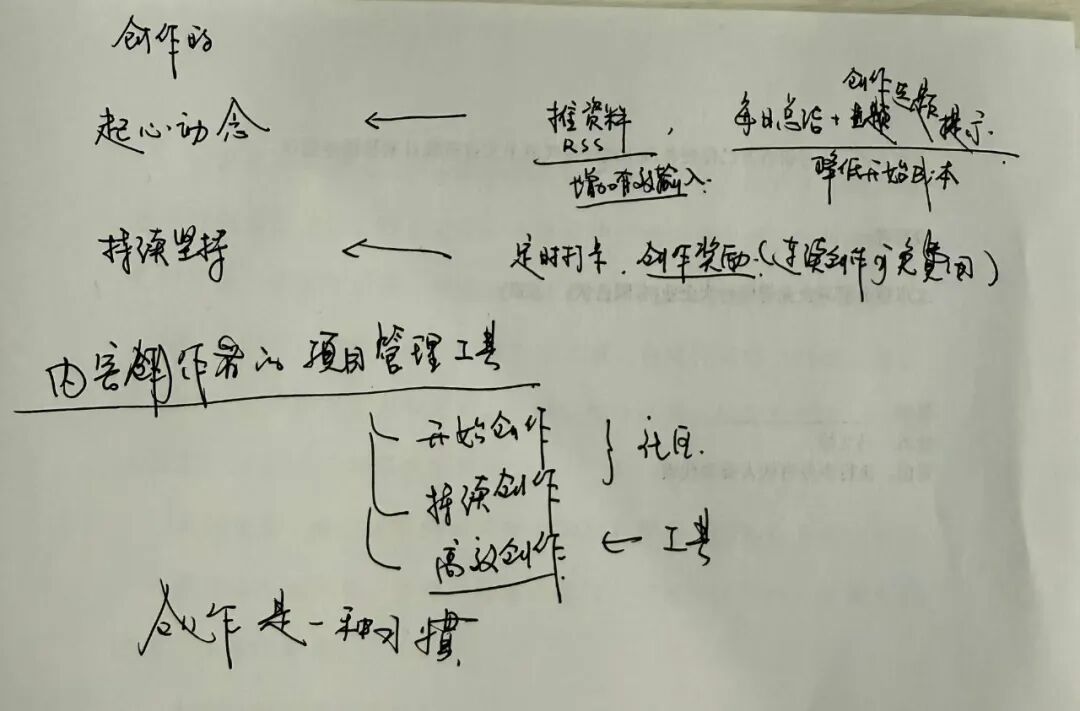 创作的
起心动念 ← 推资料, 每日总结+创作选题提示.
RSS
增加有效输入. 降低开始成本
持续坚持 ← 定时打卡、创作奖励.(连续创作可免费用)
内容创作者的项目管理工具
开始创作
持续创作 } 社区.
高效创作. ← 工具
创作是一种习惯.